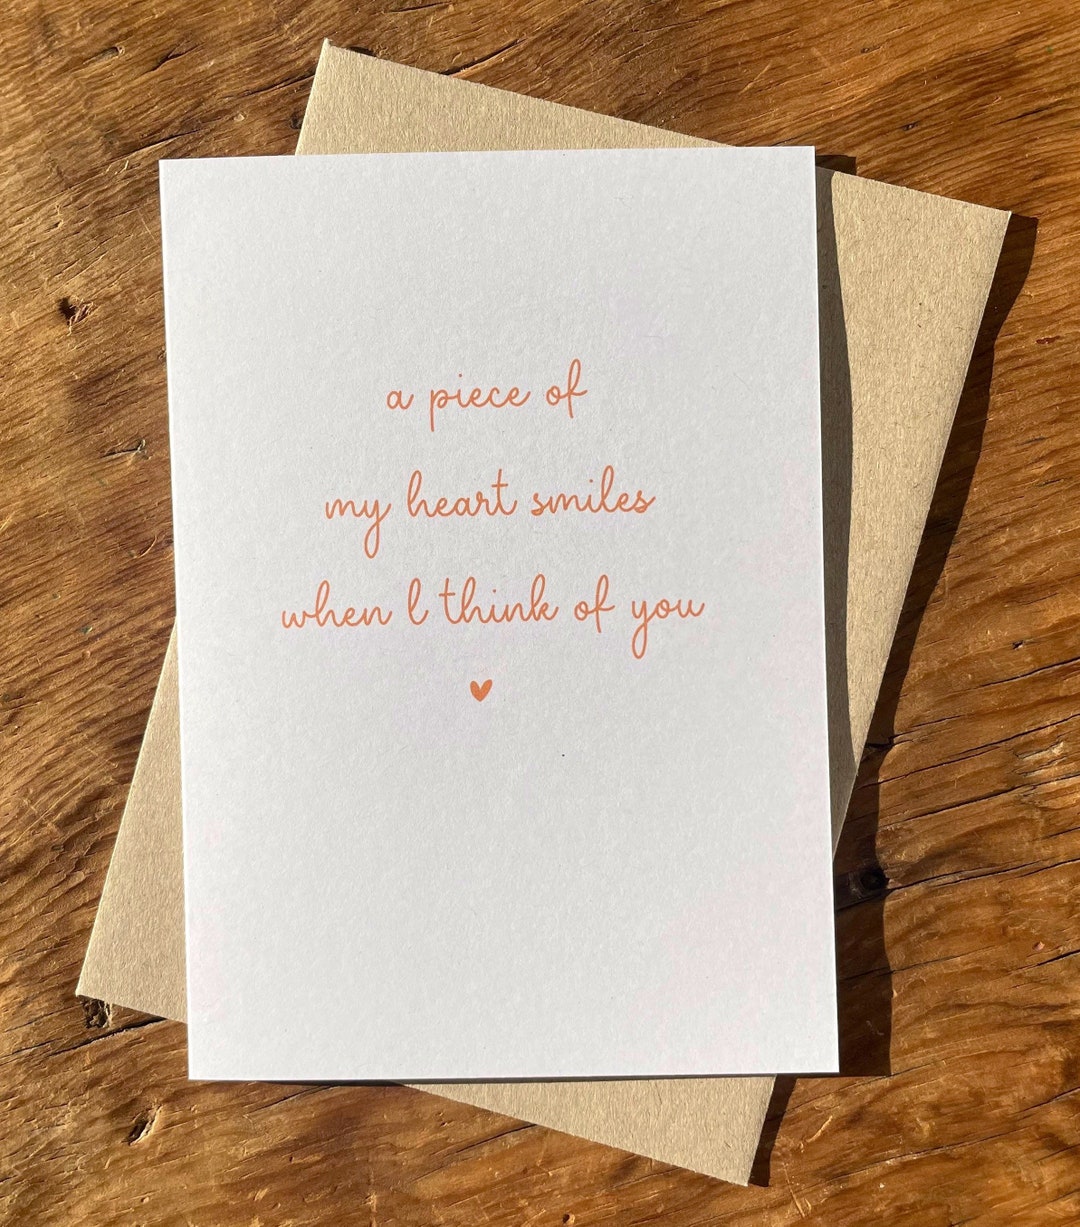 a piece of
my heart smiles
when I think of you